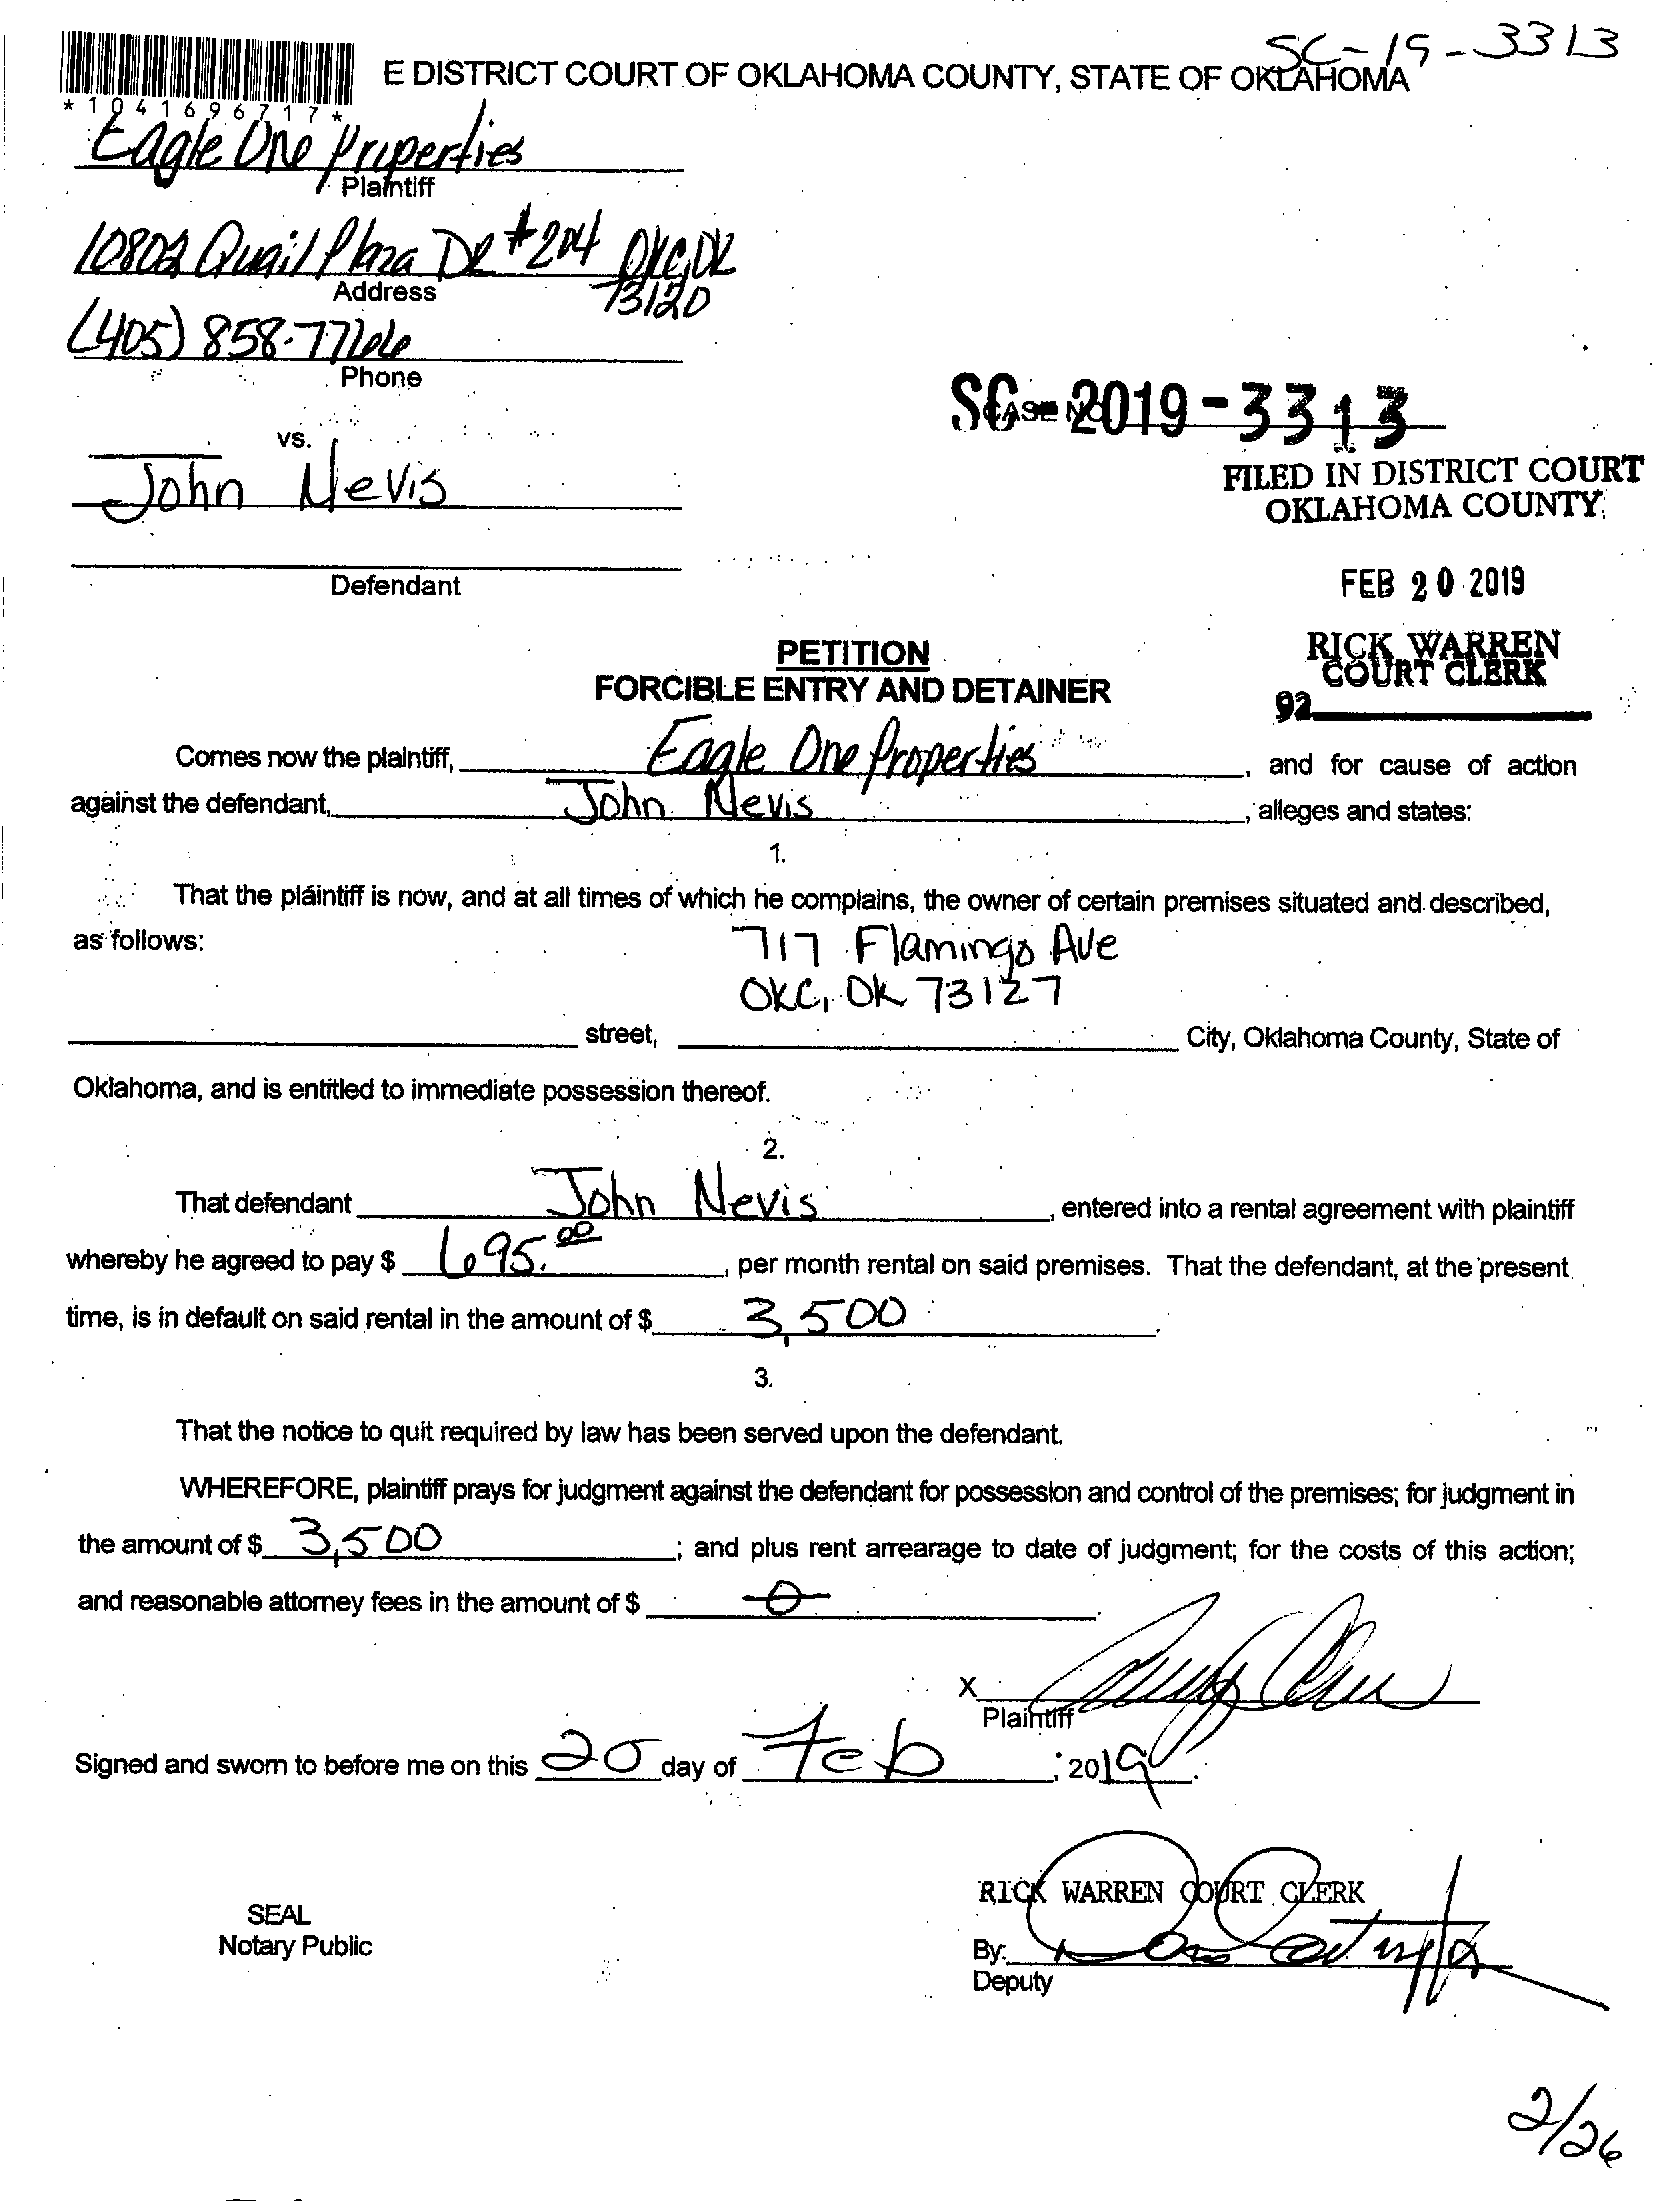 SC-19-3313
E DISTRICT COURT OF OKLAHOMA COUNTY, STATE OF OKLAHOMA
*1041696717*
Eagle One Properties
Plaintiff
10802 Quail Plaza DR #204 OKC, OK
73120
Address
(405) 858-7766
Phone
SC-2019-3313
CASE NO.
vs.
John Nevis
FILED IN DISTRICT COURT
OKLAHOMA COUNTY
Defendant
FEB 20 2019
PETITION
FORCIBLE ENTRY AND DETAINER
RICK WARREN
COURT CLERK
92
Comes now the plaintiff, Eagle One Properties, and for cause of action
against the defendant, John Nevis, alleges and states:
1.
That the plaintiff is now, and at all times of which he complains, the owner of certain premises situated and described,
as follows: 717 Flamingo Ave
OKC, OK 73127
street, City, Oklahoma County, State of
Oklahoma, and is entitled to immediate possession thereof.
2.
That defendant John Nevis, entered into a rental agreement with plaintiff
whereby he agreed to pay $ 695.00, per month rental on said premises. That the defendant, at the present
time, is in default on said rental in the amount of $ 3,500.
3.
That the notice to quit required by law has been served upon the defendant.
WHEREFORE, plaintiff prays for judgment against the defendant for possession and control of the premises; for judgment in
the amount of $ 3,500; and plus rent arrearage to date of judgment; for the costs of this action;
and reasonable attorney fees in the amount of $ 0.
X
Plaintiff
Signed and sworn to before me on this 20 day of Feb, 2019.
RICK WARREN COURT CLERK
SEAL
Notary Public
By:
Deputy
2/26